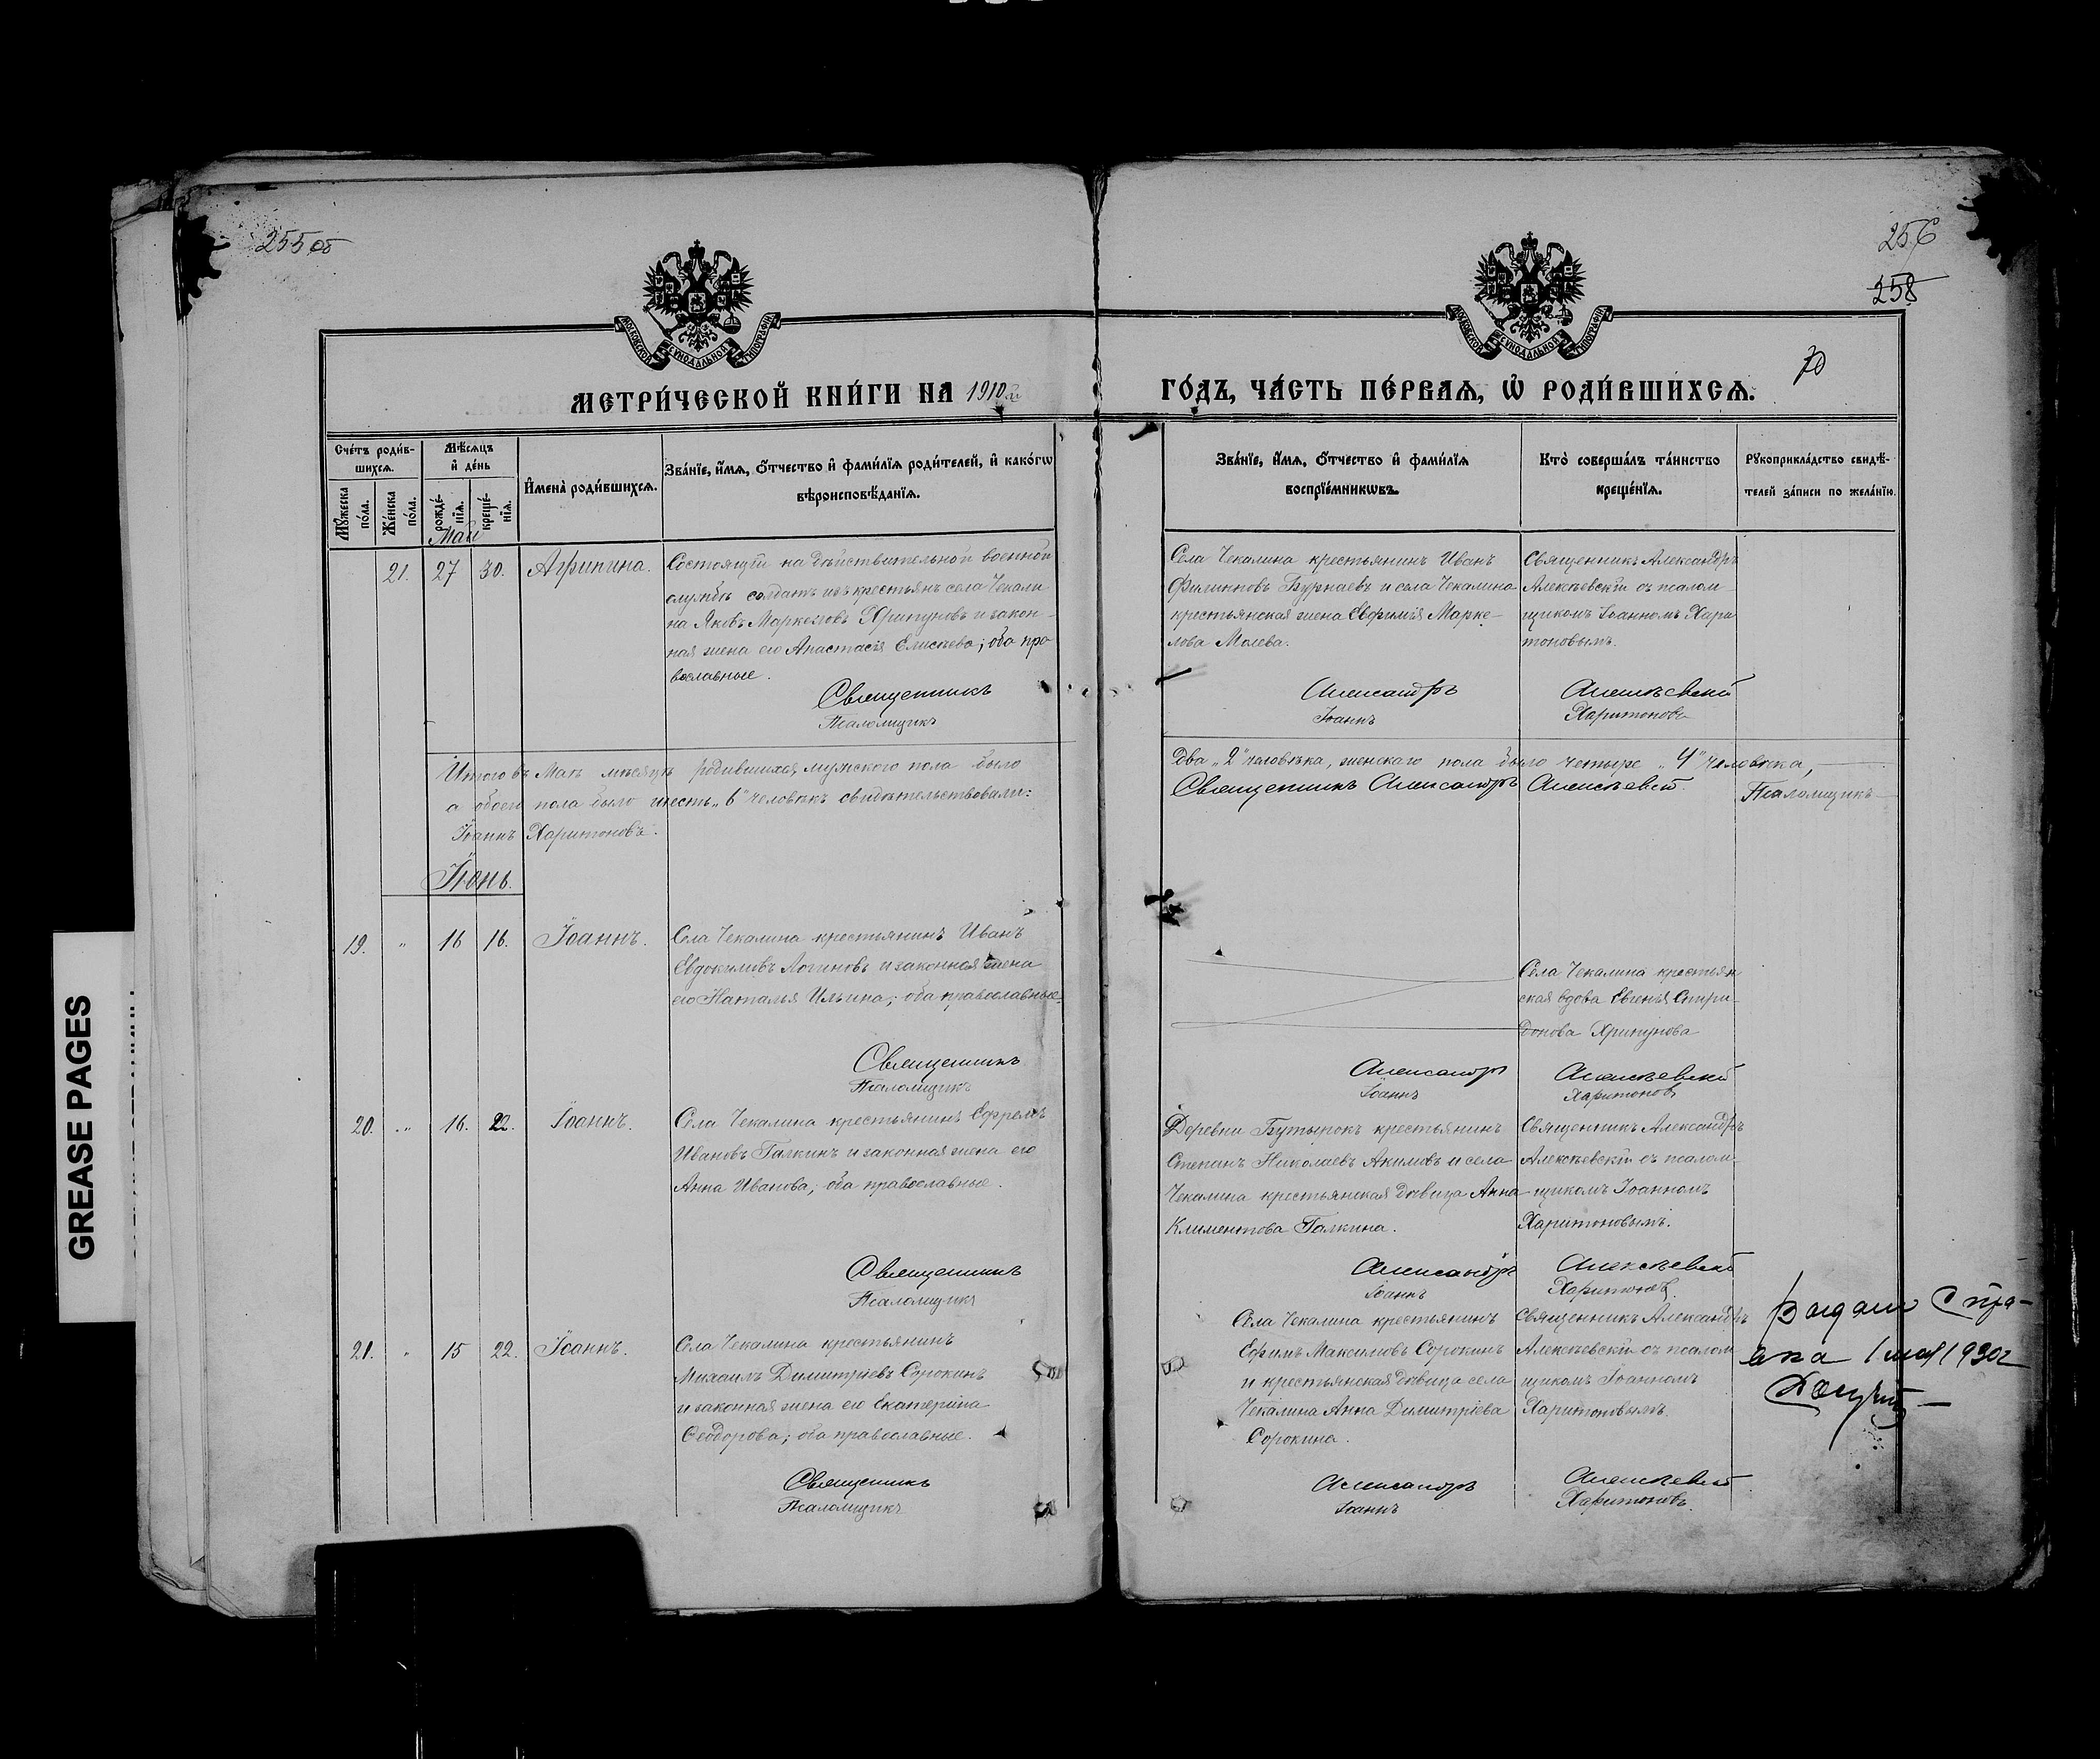 255 об
256
258
МОСКОВСКОЙ СѴНОДАЛЬНОЙ ТИПОГРАФІИ
МОСКОВСКОЙ СѴНОДАЛЬНОЙ ТИПОГРАФІИ
70
МЕТРИ́ЧЕСКОЙ КНИ́ГИ НА 1910
ГО́ДЪ, ЧА́СТЬ ПЕ́РВАѦ, Ѽ РОДИ́ВШИХСѦ.
Сче́тъ роди́в-
шихсѧ.
Мѣ́сѧцъ
и҆ де́нь
Мꙋ́жеска
по́ла.
Же́нска
по́ла.
рожде́-
нїѧ.
креще́-
нїѧ.
И҆мена̀ роди́вшихсѧ.
Зва́нїе, и҆́мѧ, ѻ҆́тчество и҆ фами́лїѧ роди́телей, и҆ како́гѡ
вѣроисповѣ́данїѧ.
Зва́нїе, и҆́мѧ, ѻ҆́тчество и҆ фами́лїѧ
воспрїе́мникѡвъ.
Кто̀ соверша́лъ та́инство
креще́нїѧ.
Рꙋкоприкла́дство свидѣ́-
телей за́писи по жела́нїю.
Май
21. 27 30. Агрипина.
Состоящій на дѣйствительной военной
службѣ солдатъ изъ крестьянъ села Чекали
на Яковъ Маркеловъ Хрипуновъ и закон-
ная жена его Анастасія Елисѣева; оба пра
вославные.
Священникъ
Псаломщикъ
Села Чекалина крестьянинъ Иванъ
Филипповъ Бурнаевъ и села Чекалина
крестьянская жена Евфимія Марке-
лова Молева.
Александръ
Іоаннъ
Священникъ Александръ
Алексѣевскій съ псалом-
щикомъ Іоанномъ Хари
тоновымъ.
Алексѣевскій
Харитоновъ
Итого въ Маѣ мѣсяцѣ родившихся мужского пола было два „2" человѣка, женскаго пола было четыре „4" человѣка,
а обоего пола было шесть „6" человѣкъ свидѣтельствовали: Священникъ Александръ Алексѣевскій. Псаломщикъ
Іоаннъ Харитоновъ.
Іюнь.
19. „ 16 16. Іоаннъ.
Села Чекалина крестьянинъ Иванъ
Евдокимовъ Логиновъ и законная жена
его Наталья Ильина; оба православные.
Священникъ
Псаломщикъ
Александръ
Іоаннъ
Села Чекалина крестьян
ская вдова Евгенія Спири-
донова Хрипунова
Алексѣевскій
Харитоновъ
20. „ 16. 22. Іоаннъ.
Села Чекалина крестьянинъ Ефремъ
Ивановъ Галкинъ и законная жена его
Анна Иванова; оба православные.
Священникъ
Псаломщикъ
Деревни Бутырокъ крестьянинъ
Степанъ Николаевъ Акимовъ и села
Чекалина крестьянская дѣвица Анна
Климентова Галкина.
Александръ
Іоаннъ
Священникъ Александръ
Алексѣевскій съ псалом-
щикомъ Іоанномъ
Харитоновымъ.
Алексѣевскій
Харитоновъ.
21. „ 15 22. Іоаннъ.
Села Чекалина крестьянинъ
Михаилъ Димитріевъ Сорокинъ
и законная жена его Екатерина
Ѳеодорова; оба православные.
Священникъ
Псаломщикъ
Села Чекалина крестьянинъ
Ефимъ Максимовъ Сорокинъ
и крестьянская дѣвица села
Чекалина Анна Димитріева
Сорокина.
Александръ
Іоаннъ
Священникъ Александръ
Алексѣевскій съ псалом
щикомъ Іоанномъ
Харитоновымъ.
Алексѣевскій
Харитоновъ.
выдана Спра-
вка 1 мая 1930г
GREASE PAGES